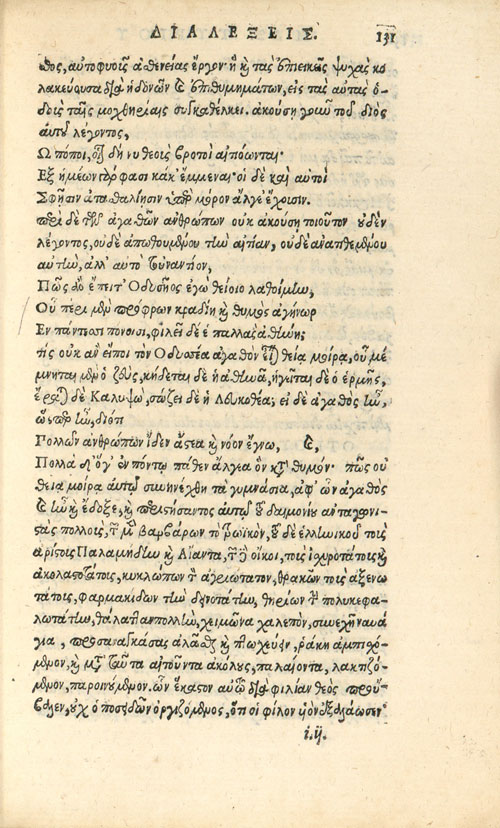 ΔΙΑΛΕΞΕΙΣ. 131
θος, αὐτοφυοῦς ἀσθενείας ἔργον· ἢ κỳ τὰς ἐπιεικῶς ψυχὰς κο
λακεύουσα διὰ ἡδονῶν καὶ ἐπιθυμημάτων, εἰς τὰς αὐτὰς ὁ-
δοὺς ταῖς μοχθηρίαις συγκαθέλκει. ἀκούσῃ γοῦν τοῦ διὸς
αὐτοῦ λέγοντος,
Ω πόποι, οἷον δή νυ θεοὺς βροτοὶ αἰτιόωνται·
Εξ ἡμέων γάρ φασι κάκ' ἔμμεναι· οἱ δὲ καὶ αὐτοὶ
Σφῇσιν ἀτασθαλίῃσιν ὑπὲρ μόρον ἄλγε' ἔχουσιν.
περὶ δὲ τῶν ἀγαθῶν ἀνθρώπων οὐκ ἀκούσῃ τοιοῦτον οὐδὲν
λέγοντος, οὐδὲ ἀπωθουμένου τὴν αἰτίαν, οὐδὲ ἀνατιθεμένου
αὐτὴν, ἀλλ' αὐτὸ τοὐναντίον,
Πῶς ἂν ἔπειτ' Οδυσῆος ἐγὼ θείοιο λαθοίμην,
Οὗ πέρι μὲν πρόφρων κραδίη καὶ θυμὸς ἀγήνωρ
Εν πάντεσσι πόνοισι, φιλεῖ δέ ἑ παλλὰς ἀθήνη;
τίς οὐκ ἂν εἴποι τὸν Οδυσσέα ἀγαθὸν εἶναι θείᾳ μοίρᾳ, οὗ μέ
μνηται μὲν ὁ ζεὺς, κήδεται δὲ ἡ ἀθηνᾶ, ἡγεῖται δὲ ὁ ἑρμῆς,
ἐρᾷ δὲ Καλυψὼ, σώζει δὲ ἡ Λευκοθέα; εἰ δὲ ἀγαθὸς ἦν,
ὥσπερ ἦν, διότι
Πολλῶν ἀνθρώπων ἴδεν ἄστεα καὶ νόον ἔγνω, καὶ,
Πολλὰ δ' ὅγ' ἐν πόντῳ πάθεν ἄλγεα ὃν κατὰ θυμόν· πῶς οὐ
θείᾳ μοίρᾳ αὐτῷ συνηνέχθη τὰ γυμνάσια, ἀφ' ὧν ἀγαθὸς
καὶ ἦν καὶ ἔδοξε, καὶ προστήσαντος αὐτῷ τοῦ δαιμονίου ἀνταγωνι-
στὰς πολλοὺς, τῶν μὲν βαρβάρων τὸ Τρωϊκὸν, τοῦ δὲ ἑλληνικοῦ τοὺς
ἀρίστους Παλαμήδην καὶ Αἴαντα, τῶν δὲ οἴκοι, τοὺς ἰσχυροτάτους καὶ
ἀκολαστοτάτους, κυκλώπων τὸν ἀγριώτατον, θρακῶν τοὺς ἀξενω
τάτους, φαρμακίδων τὴν δεινοτάτην, θηρίων τὸ πολυκεφα-
λωτάτην, θάλατταν πολλὴν, χειμῶνα χαλεπὸν, συνεχῆ ναυά
για, προσαναγκάσας ἀλᾶσθαι καὶ πτωχεύειν, ῥάκη ἀμπισχό-
μενον, καὶ μετὰ ταῦτα αἰτοῦντα ἀκόλους, παλαίοντα, λακτιζό-
μενον, παροινούμενον. ὧν ἕκαστον αὐτῷ διὰ φιλίαν θεὸς προὔ-
βαλεν, οὐχ ὁ ποσειδῶν ὀργιζόμενος, ὅτι οἱ φίλον υἱὸν ἐξαλάωσεν·
i. ij.